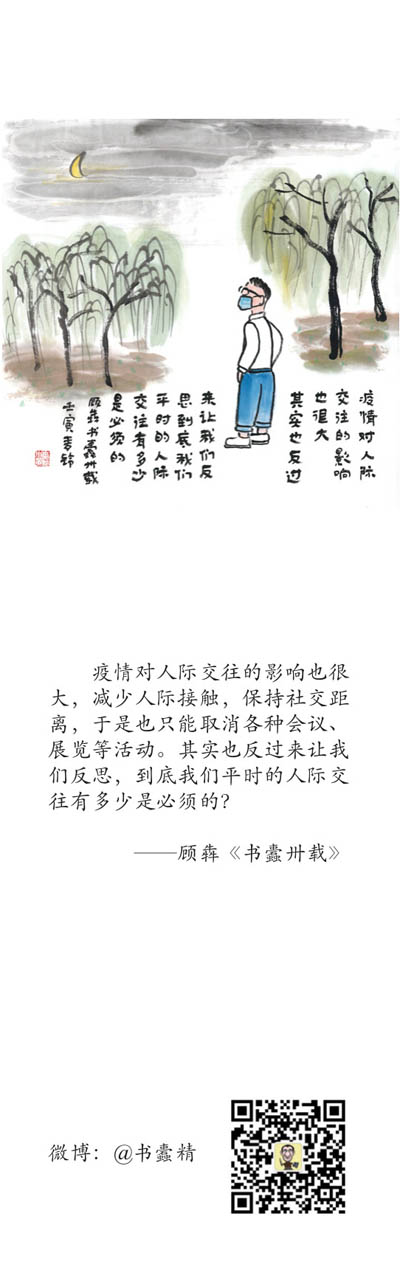 疫情对人际
交往的影响
也很大
其实也反过
来让我们反
思到底我们
平时的人际
交往有多少
是必须的
顾犇书蠹卅载
壬寅
疫情对人际交往的影响也很
大，减少人际接触，保持社交距
离，于是也只能取消各种会议、
展览等活动。其实也反过来让我
们反思，到底我们平时的人际交
往有多少是必须的？
——顾犇《书蠹卅载》
微博：@书蠹精